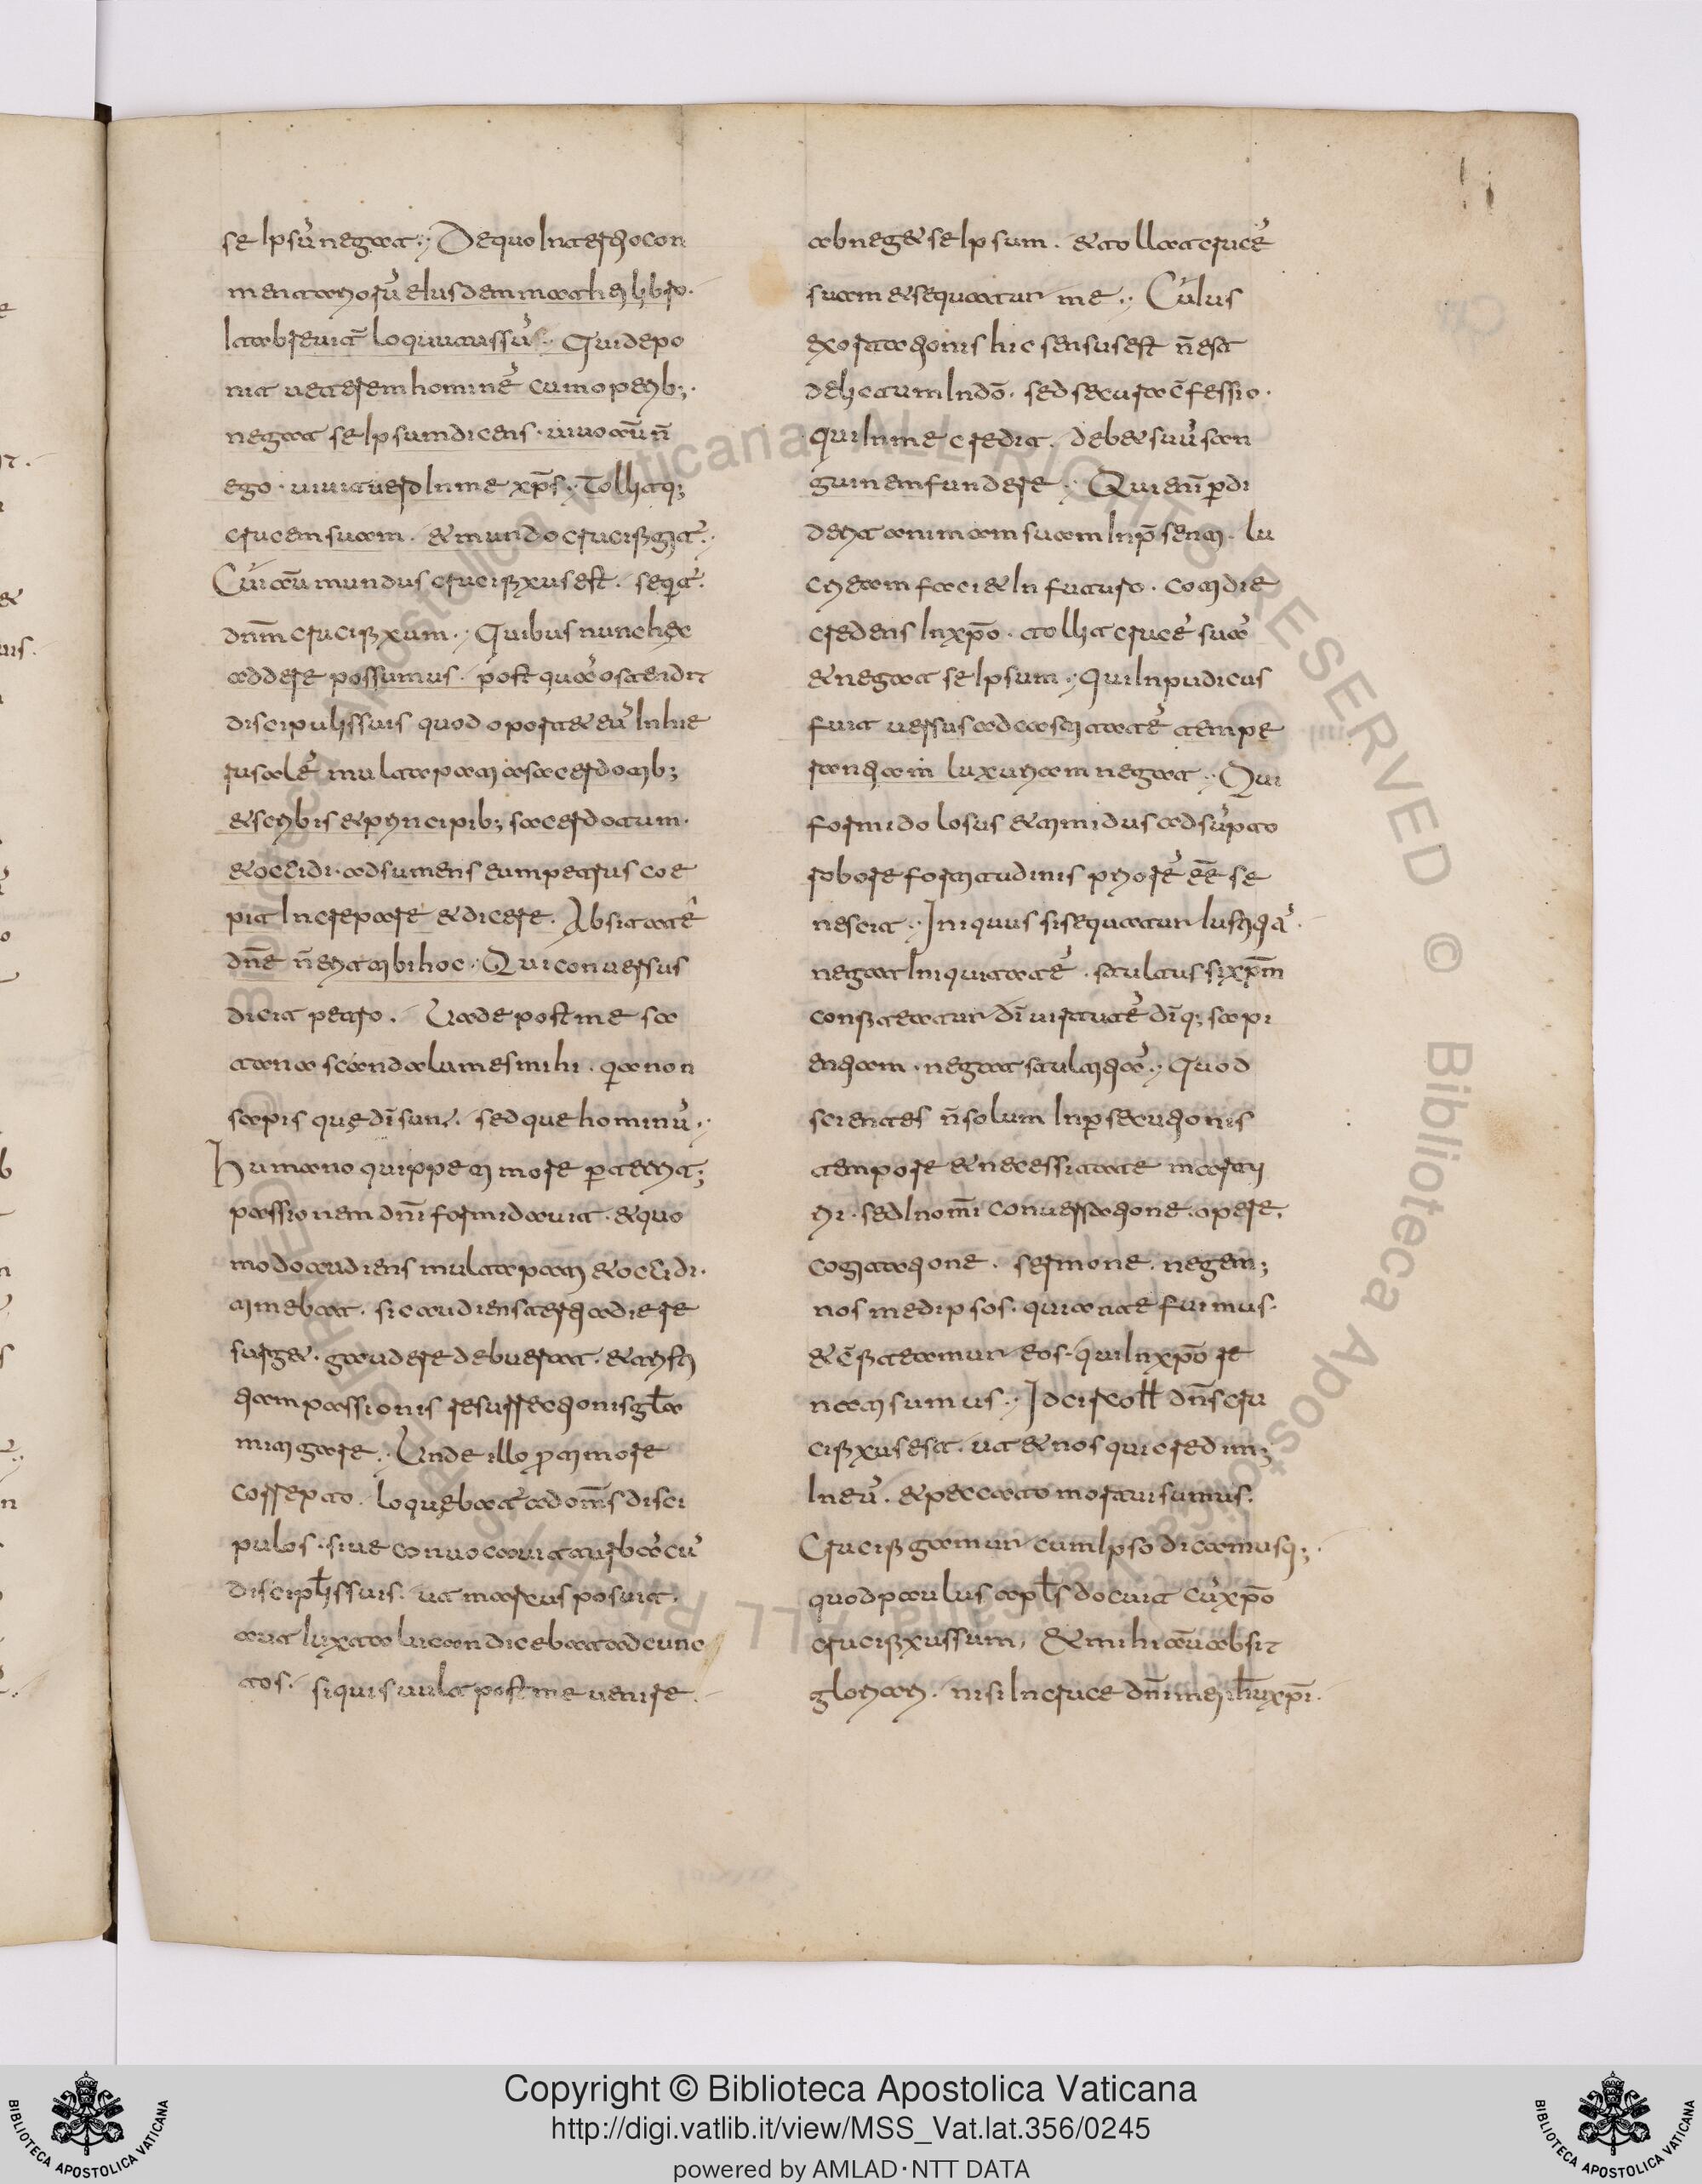 se ipsū negat. De quo in tertio com
mentariorū eiusdem mathei libro.
ita breuit̄ locutus sū. Qui depo
nit ueterem hominē cum operib;
negat se ipsum dicens. uiuo aū n̄
ego. uiuit uero in me xp̄s. Tollitq;
crucem suam. & mundo crucifigit̄.
Cui aū mundus crucifixus est. seqit̄
dn̄m crucifixum. Quibus nunc hęc
addere possumus. postquā ostendit
discipulis suis quod oporter& eū in hie
rusalē multa pati a sacerdotib;
& scribis & principib; sacerdotum.
& occidi. adsumens eum petrus coe
pit increpare & dicere. Absit a te
dn̄e n̄ erit tibi hoc. Qui conuersus
dicit petro. Uade post me sa
tana scandalum es mihi. qa non
sapis quę dī sunt. sed que hominū.
Humano quippe timore perterrit;
passionem dn̄i formidauit. & quo
modo audiens multa pati & occidi.
timebat. sic audiens tertia die re
surg&. gaudere debuerat. & tristi
tiam passionis resurrectionis gła
mitigare. Unde illo p̄ timore
correpto. loquebat̄ ad om̄s disci
pulos. siue conuocauit turbā cū
discipłis suis. ut marcus posuit.
aut iuxta lucan dicebat ad cunc
tos. si quis uult post me uenire.
abneg& se ipsum. & tollat crucē
suam & sequatur me. Cuius
exortationis hic sensus est n̄ est
delicatum in dō. sed secura c̄fessio.
qui in me credit. deb& suū san
guinem fundere. Qui enī p̄di
derit animam suam in p̄senti. lu
cri eam faci& in futuro. cotidie
credens in xp̄o. tollit crucē suā
& negat se ipsum. Qui inpudicus
fuit uersus ad castitatē tempe
rantiam luxuriam negat. Qui
formidolosus & timidus adsūpto
robore fortitudinis priorē ēē se
nescit. Iniquus si sequatur iustitiā.
negat iniquitatē. stultus si xp̄m
confiteatur dī uirtutē dīq; sapi
entiam. negat stultitiā. Quod
scientes n̄ solum in persecutionis
tempore & necessitate marty
rii. sed in om̄i conuersatione. opere.
cogitatione. sermone. negem;
nosmedipsos. qui ante fuimus.
& c̄fiteamur eos. qui in xp̄o re
nati sumus. Idcirco dn̄s cru
cifixus est. ut & nos qui credim;
in eū. & peccato mortui sumus.
Crucifigamur cum ipso dicamusq;
quod paulus apłs docuit cū xp̄o
crucifixus sum, & mihi aū absit
gloriari. nisi in cruce dn̄i mei ih̄u xp̄i.
Copyright © Biblioteca Apostolica Vaticana
http://digi.vatlib.it/view/MSS_Vat.lat.356/0245
powered by AMLAD·NTT DATA
BIBLIOTECA APOSTOLICA VATICANA
BIBLIOTECA APOSTOLICA VATICANA